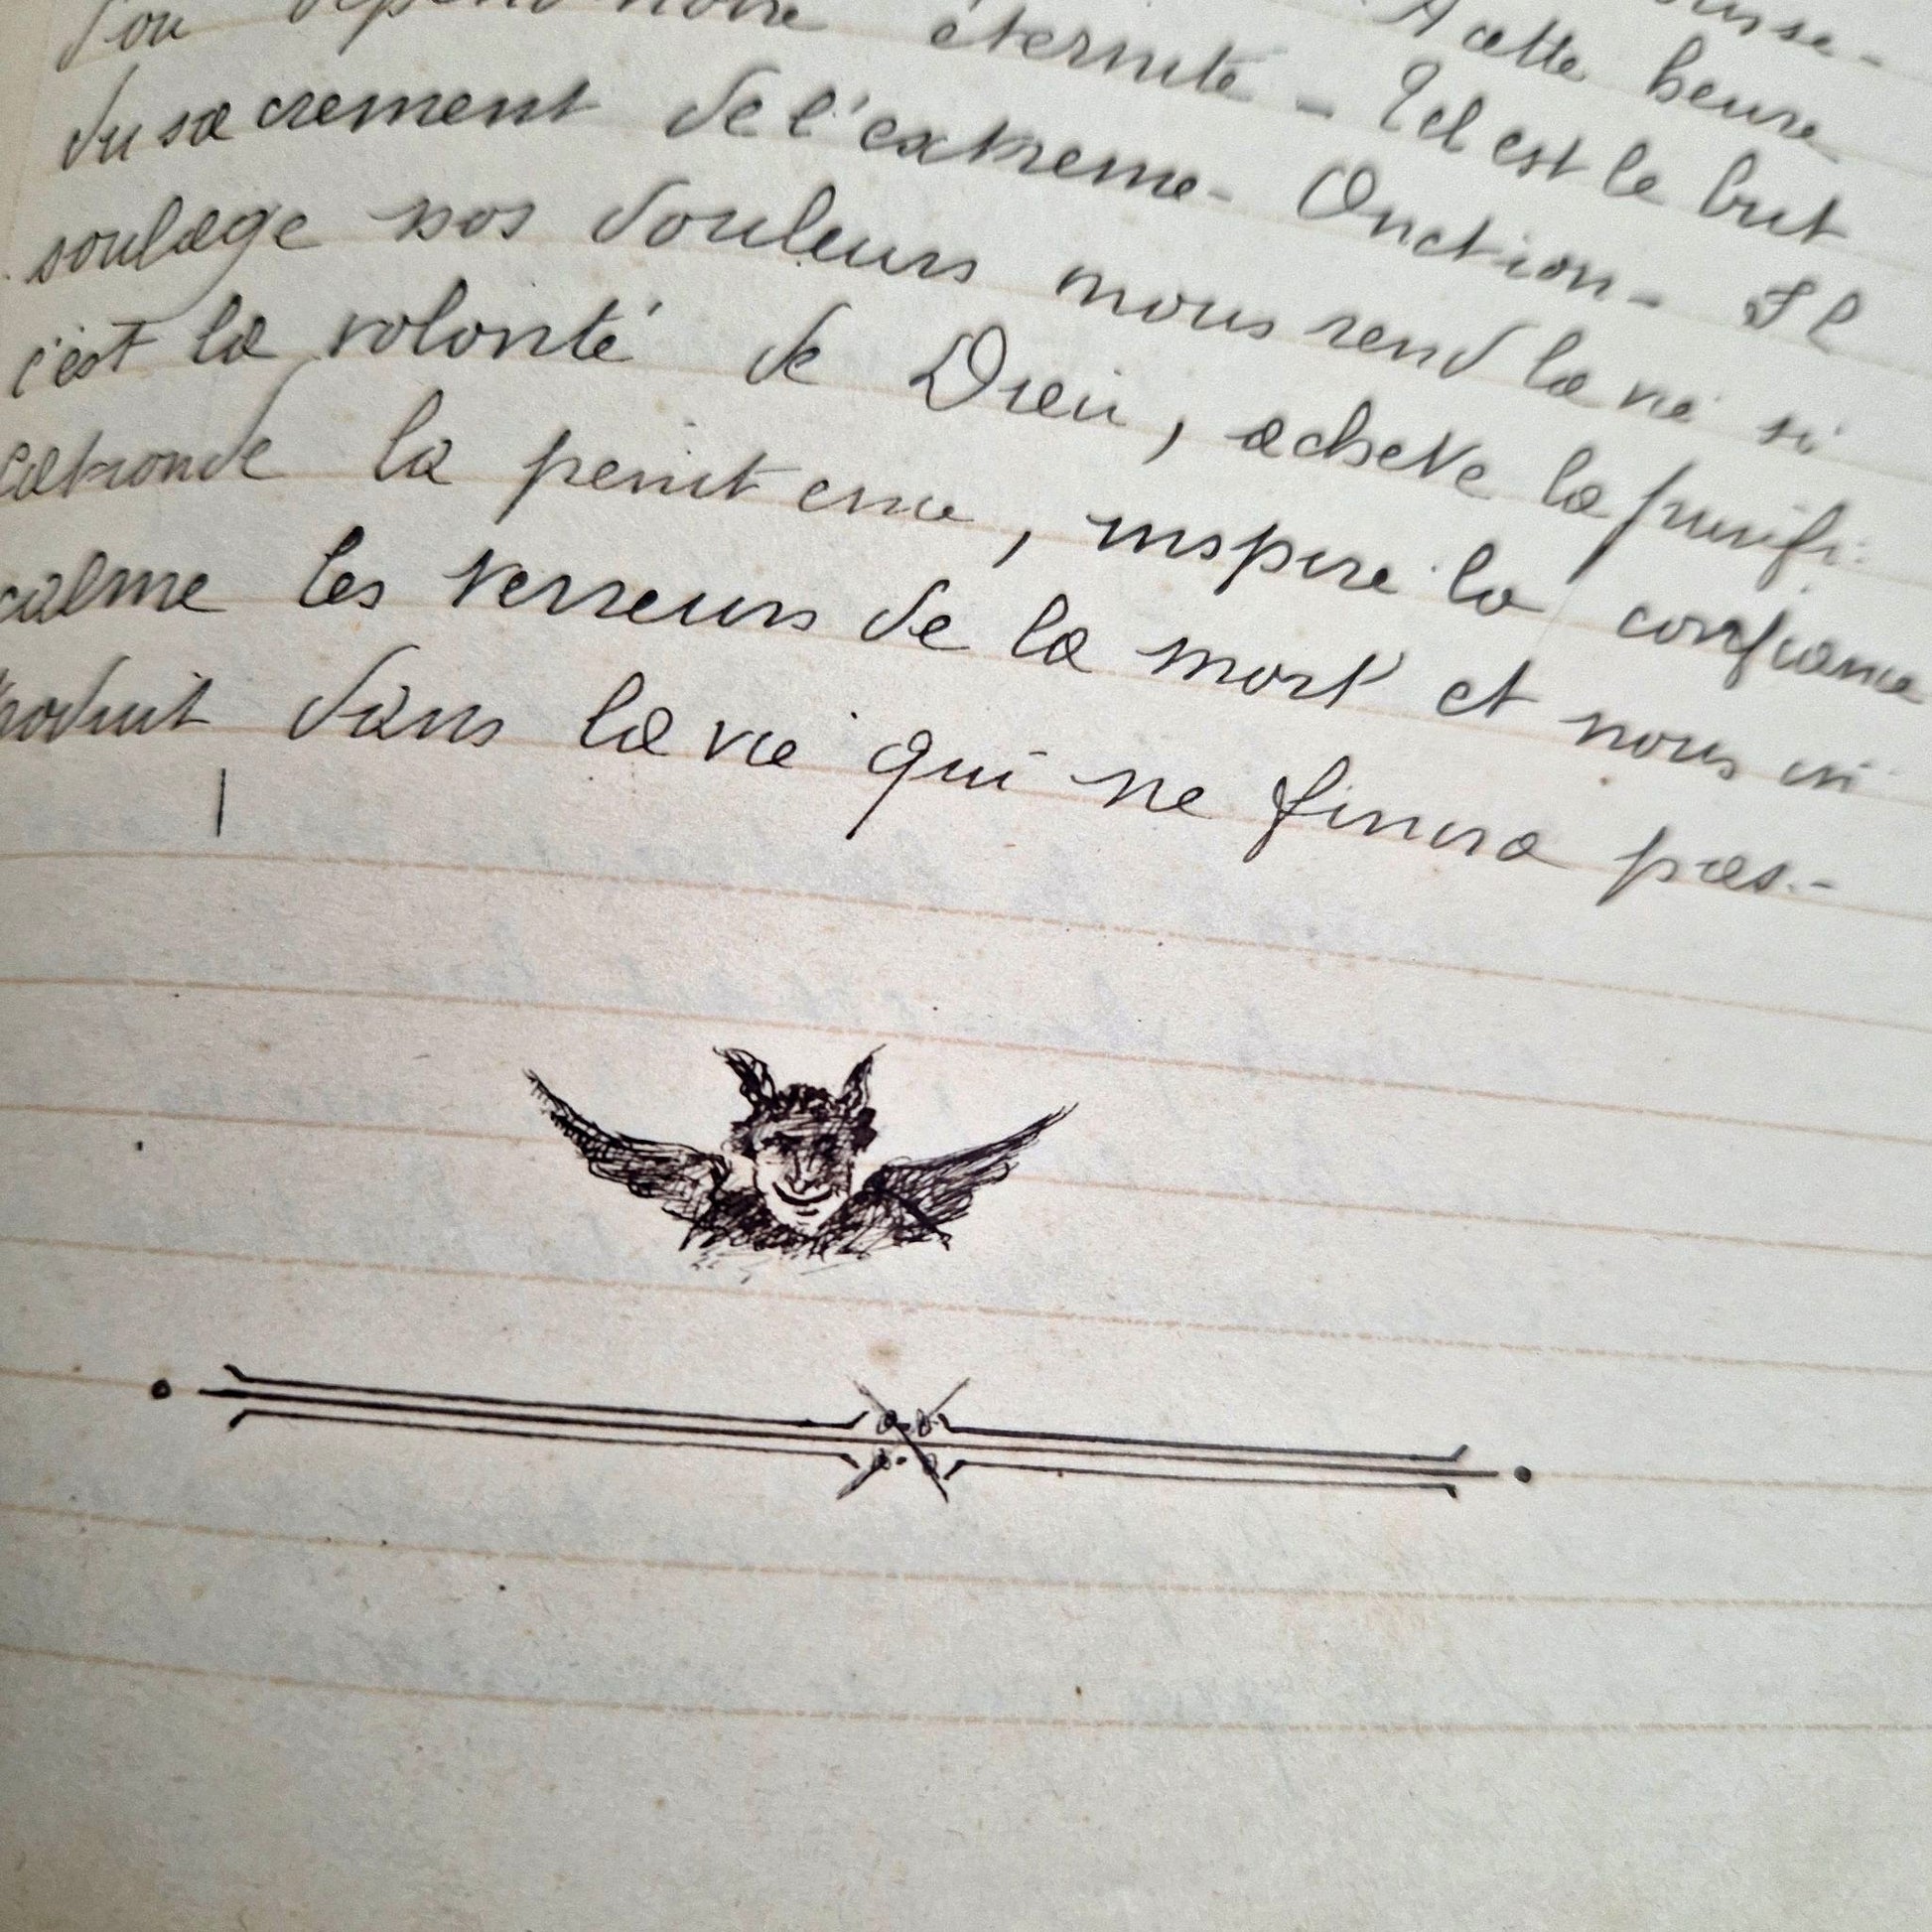 A cette heure
d'où dépend notre éternité - Tel est le but
du sacrement de l'extreme-Onction - Il
soulage nos douleurs nous rend la vie si
c'est la volonté de Dieu, acheve la purifi-
cationde la penitence, inspire la confiance
calme les terreurs de la mort et nous in
troduit dans la vie qui ne finira pas.-